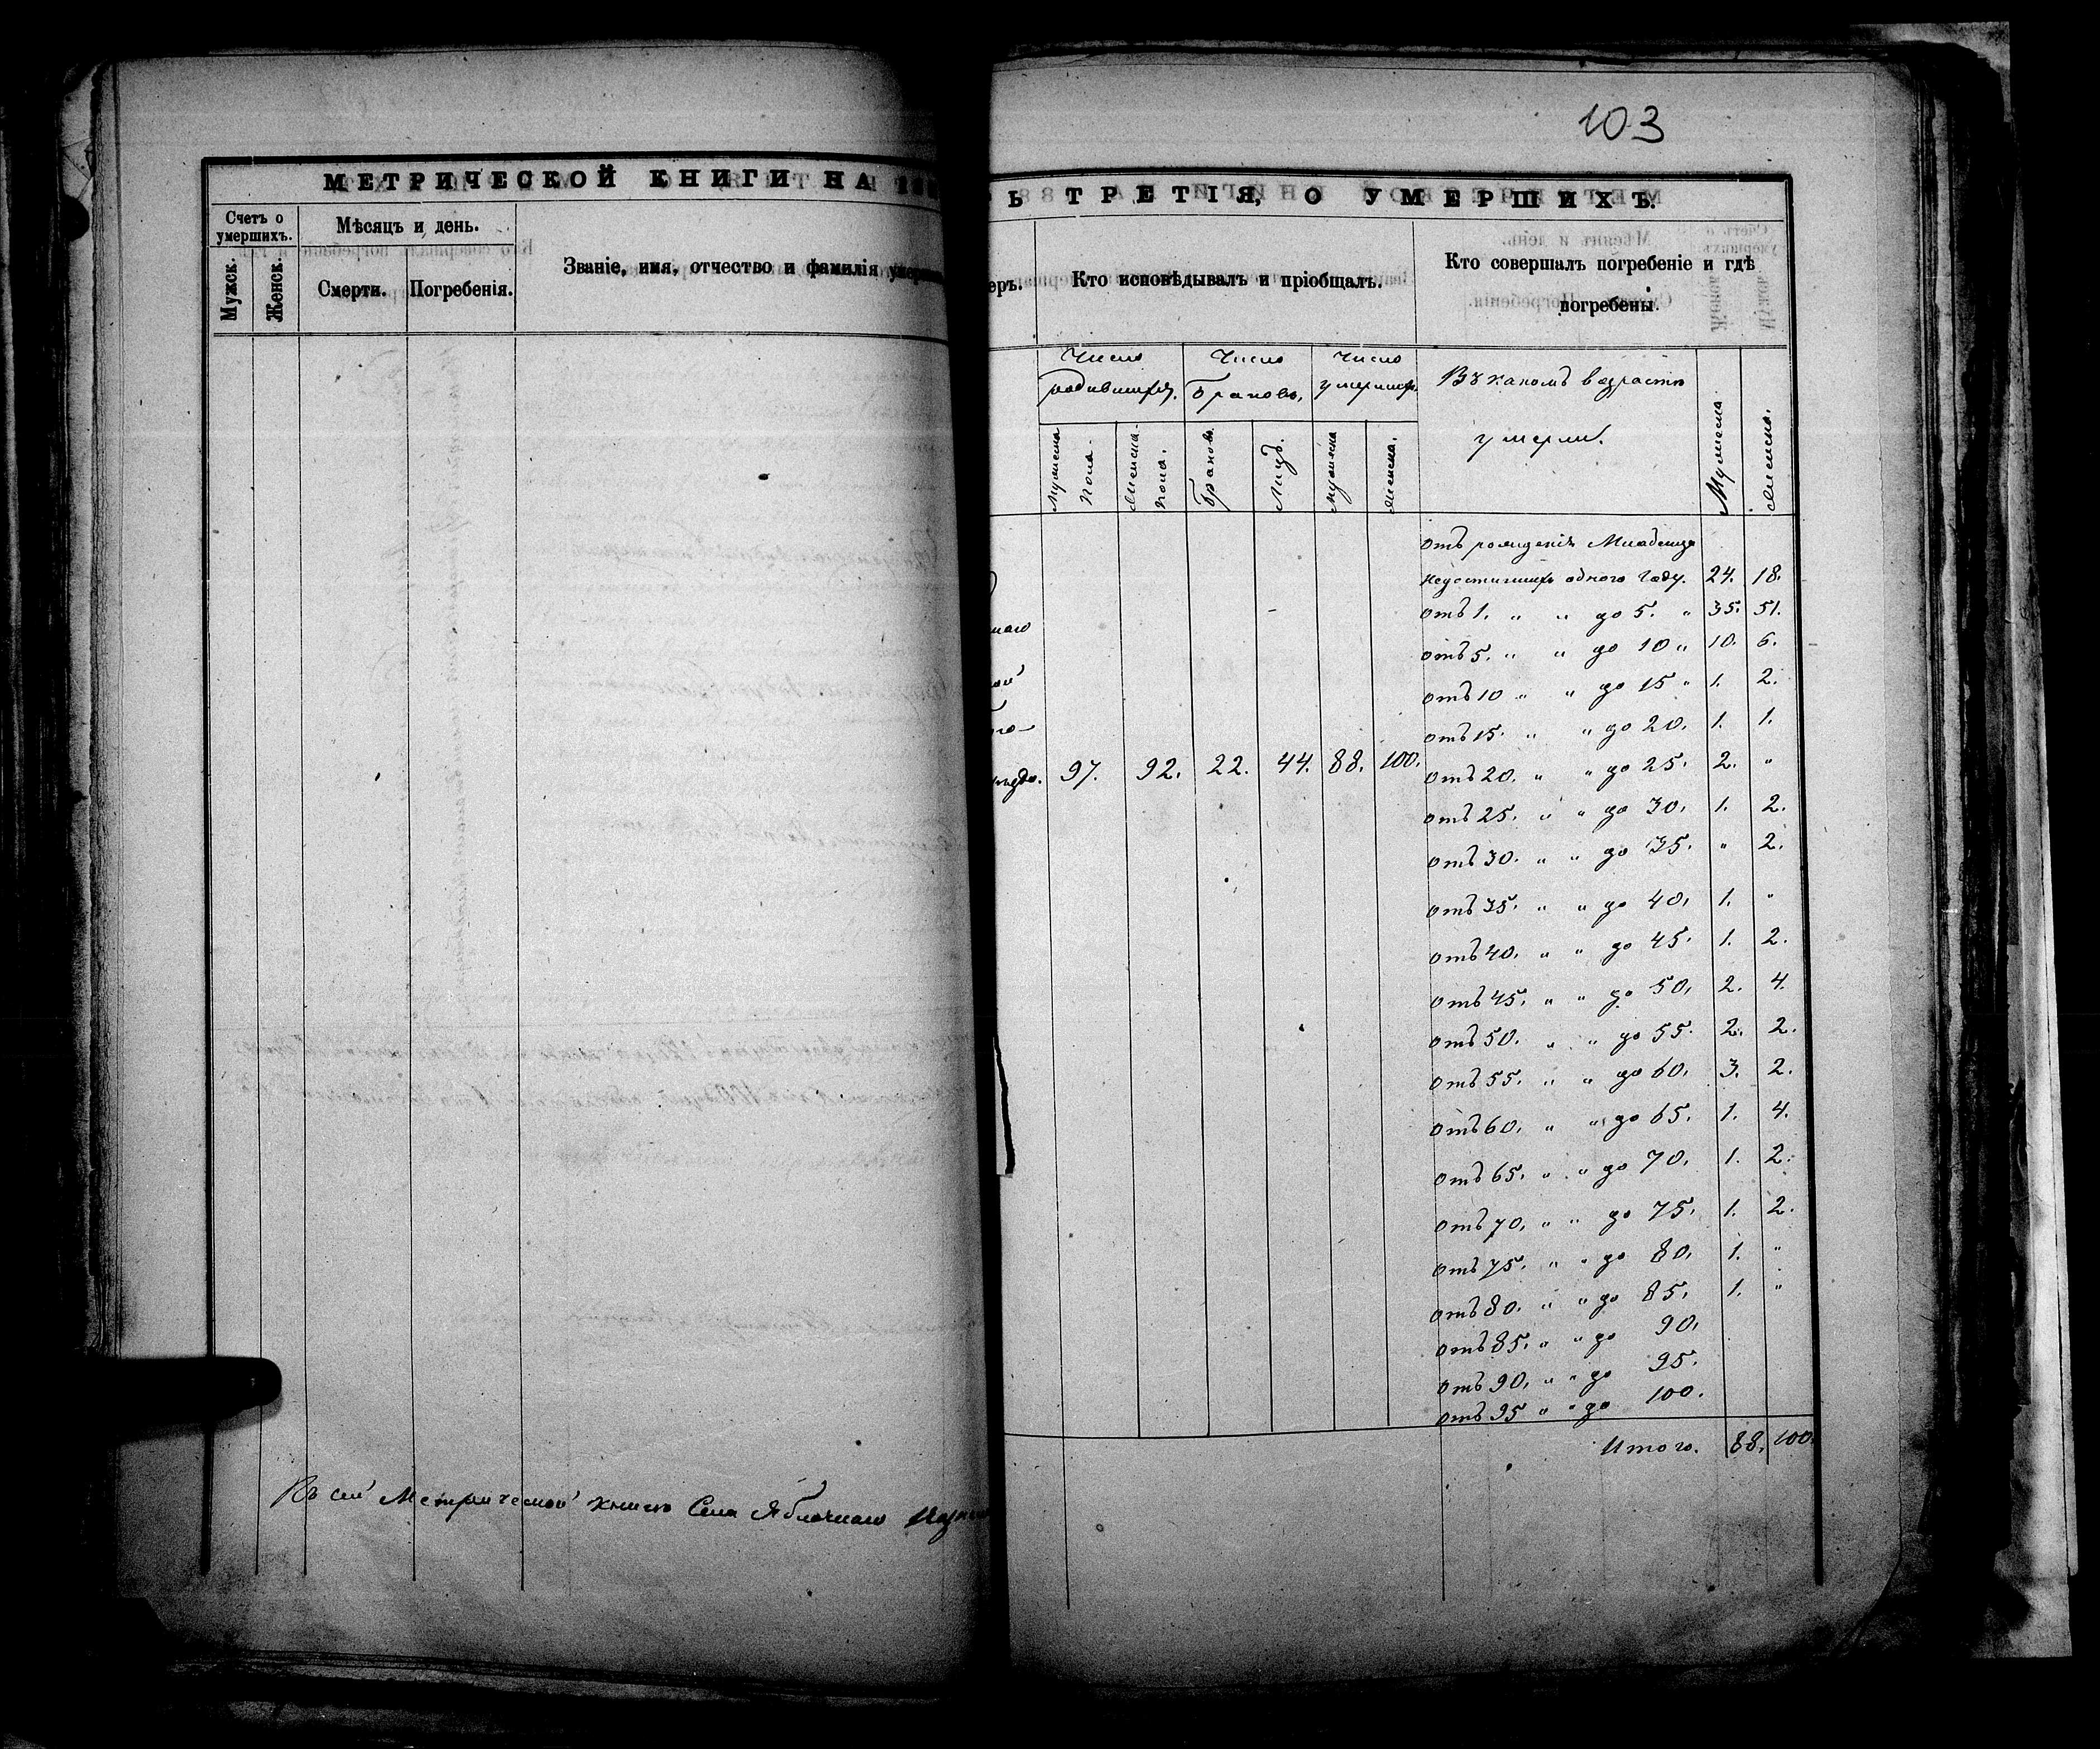 103
МЕТРИЧЕСКОЙ КНИГИ НА 18
Счетъ о умершихъ.
Мѣсяцъ и день.
Званіе, имя, отчество и фамилія
Мужск.
Женск.
Смерти.
Погребенія.
Ь ТРЕТІЯ, О УМЕРШИХЪ.
еръ.
Кто исповѣдывалъ и пріобщалъ.
Кто совершалъ погребеніе и гдѣ
погребены.
Число родившихся.
Число браковъ,
Число умершихъ.
Въ какомъ возрастѣ
умерли.
Мужеска пола.
Женска пола.
Браковъ.
Лицъ.
Мужеска
Женска.
Мужеска
Женска.
отъ рожденія Младенца
недостигших одного году. 24. 18.
отъ 1. " " до 5. " 35. 51.
отъ 5. " " до 10 " 10. 6.
отъ 10 " " до 15 " 1. 2.
отъ 15. " " до 20. 1. 1.
97. 92. 22. 44. 88. 100.
отъ 20. " " до 25. 2. "
отъ 25. " " до 30. 1. 2.
отъ 30. " " до 35. " 2.
отъ 35. " " до 40. 1. "
отъ 40. " " до 45. 1. 2.
отъ 45. " " до 50. 2. 4.
отъ 50. " " до 55. 2. 2.
отъ 55. " " до 60. 3. 2.
отъ 60. " " до 65. 1. 4.
отъ 65. " " до 70. 1. 2.
отъ 70. " " до 75. 1. 2.
отъ 75. " " до 80. 1. "
отъ 80. " " до 85. 1. "
отъ 85. " " до 90.
отъ 90. " " до 95.
отъ 95 " " до 100.
Итого. 88. 100.
Въ сей Метрической книге Села Яблочнаго